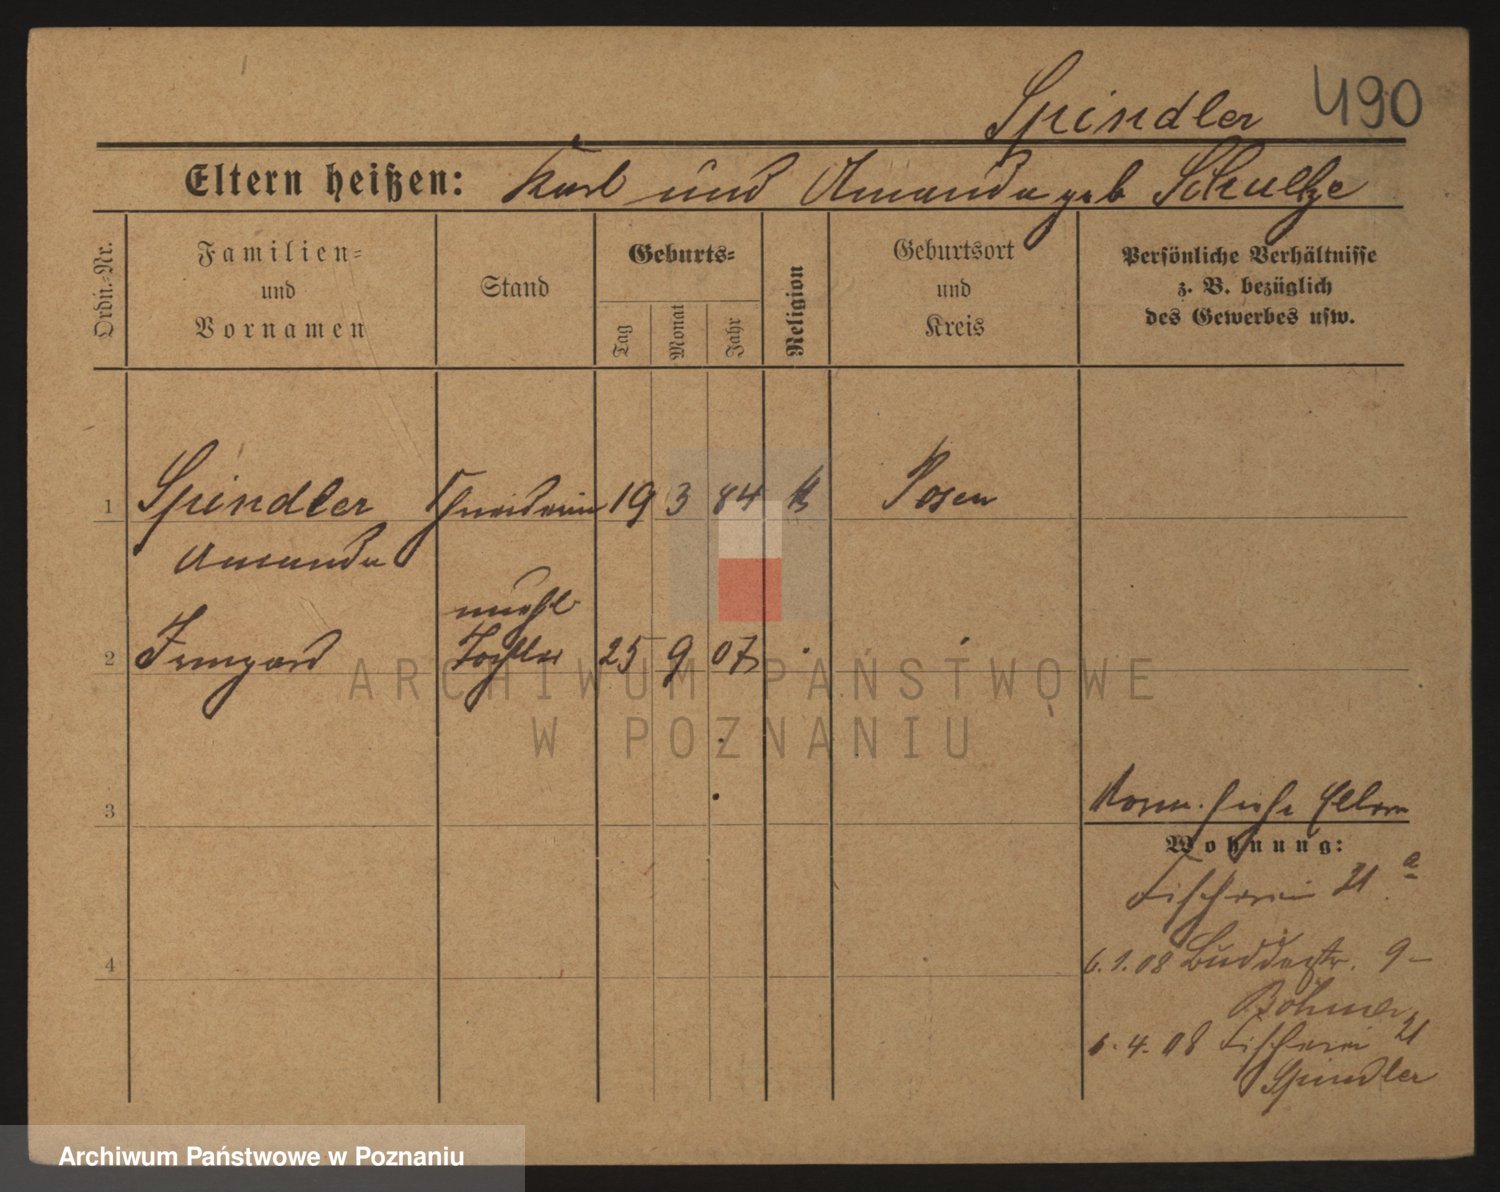 Spindler 490
Eltern heißen: Karl und Amanda geb Schultze
Ordn.-Nr.
Familien-
und
Vornamen
Stand
Geburts-
Tag
Monat
Jahr
Religion
Geburtsort
und
Kreis
Persönliche Verhältnisse
z. B. bezüglich
des Gewerbes usw.
1 Spindler Schneiderin 19 3 84 Posen
Amanda
unehl
2 Irmgard Tochter 25 9 07
3
siehe Eltern
Wohnung:
Fischerei 21 a
4
6.1.08 Buddestr. 9
Böhmer
6.4.08 Fischerei 21
Spindler
ARCHIWUM PAŃSTWOWE
W POZNANIU
Archiwum Państwowe w Poznaniu